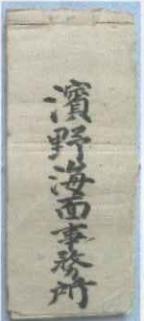 濱野海面事務所